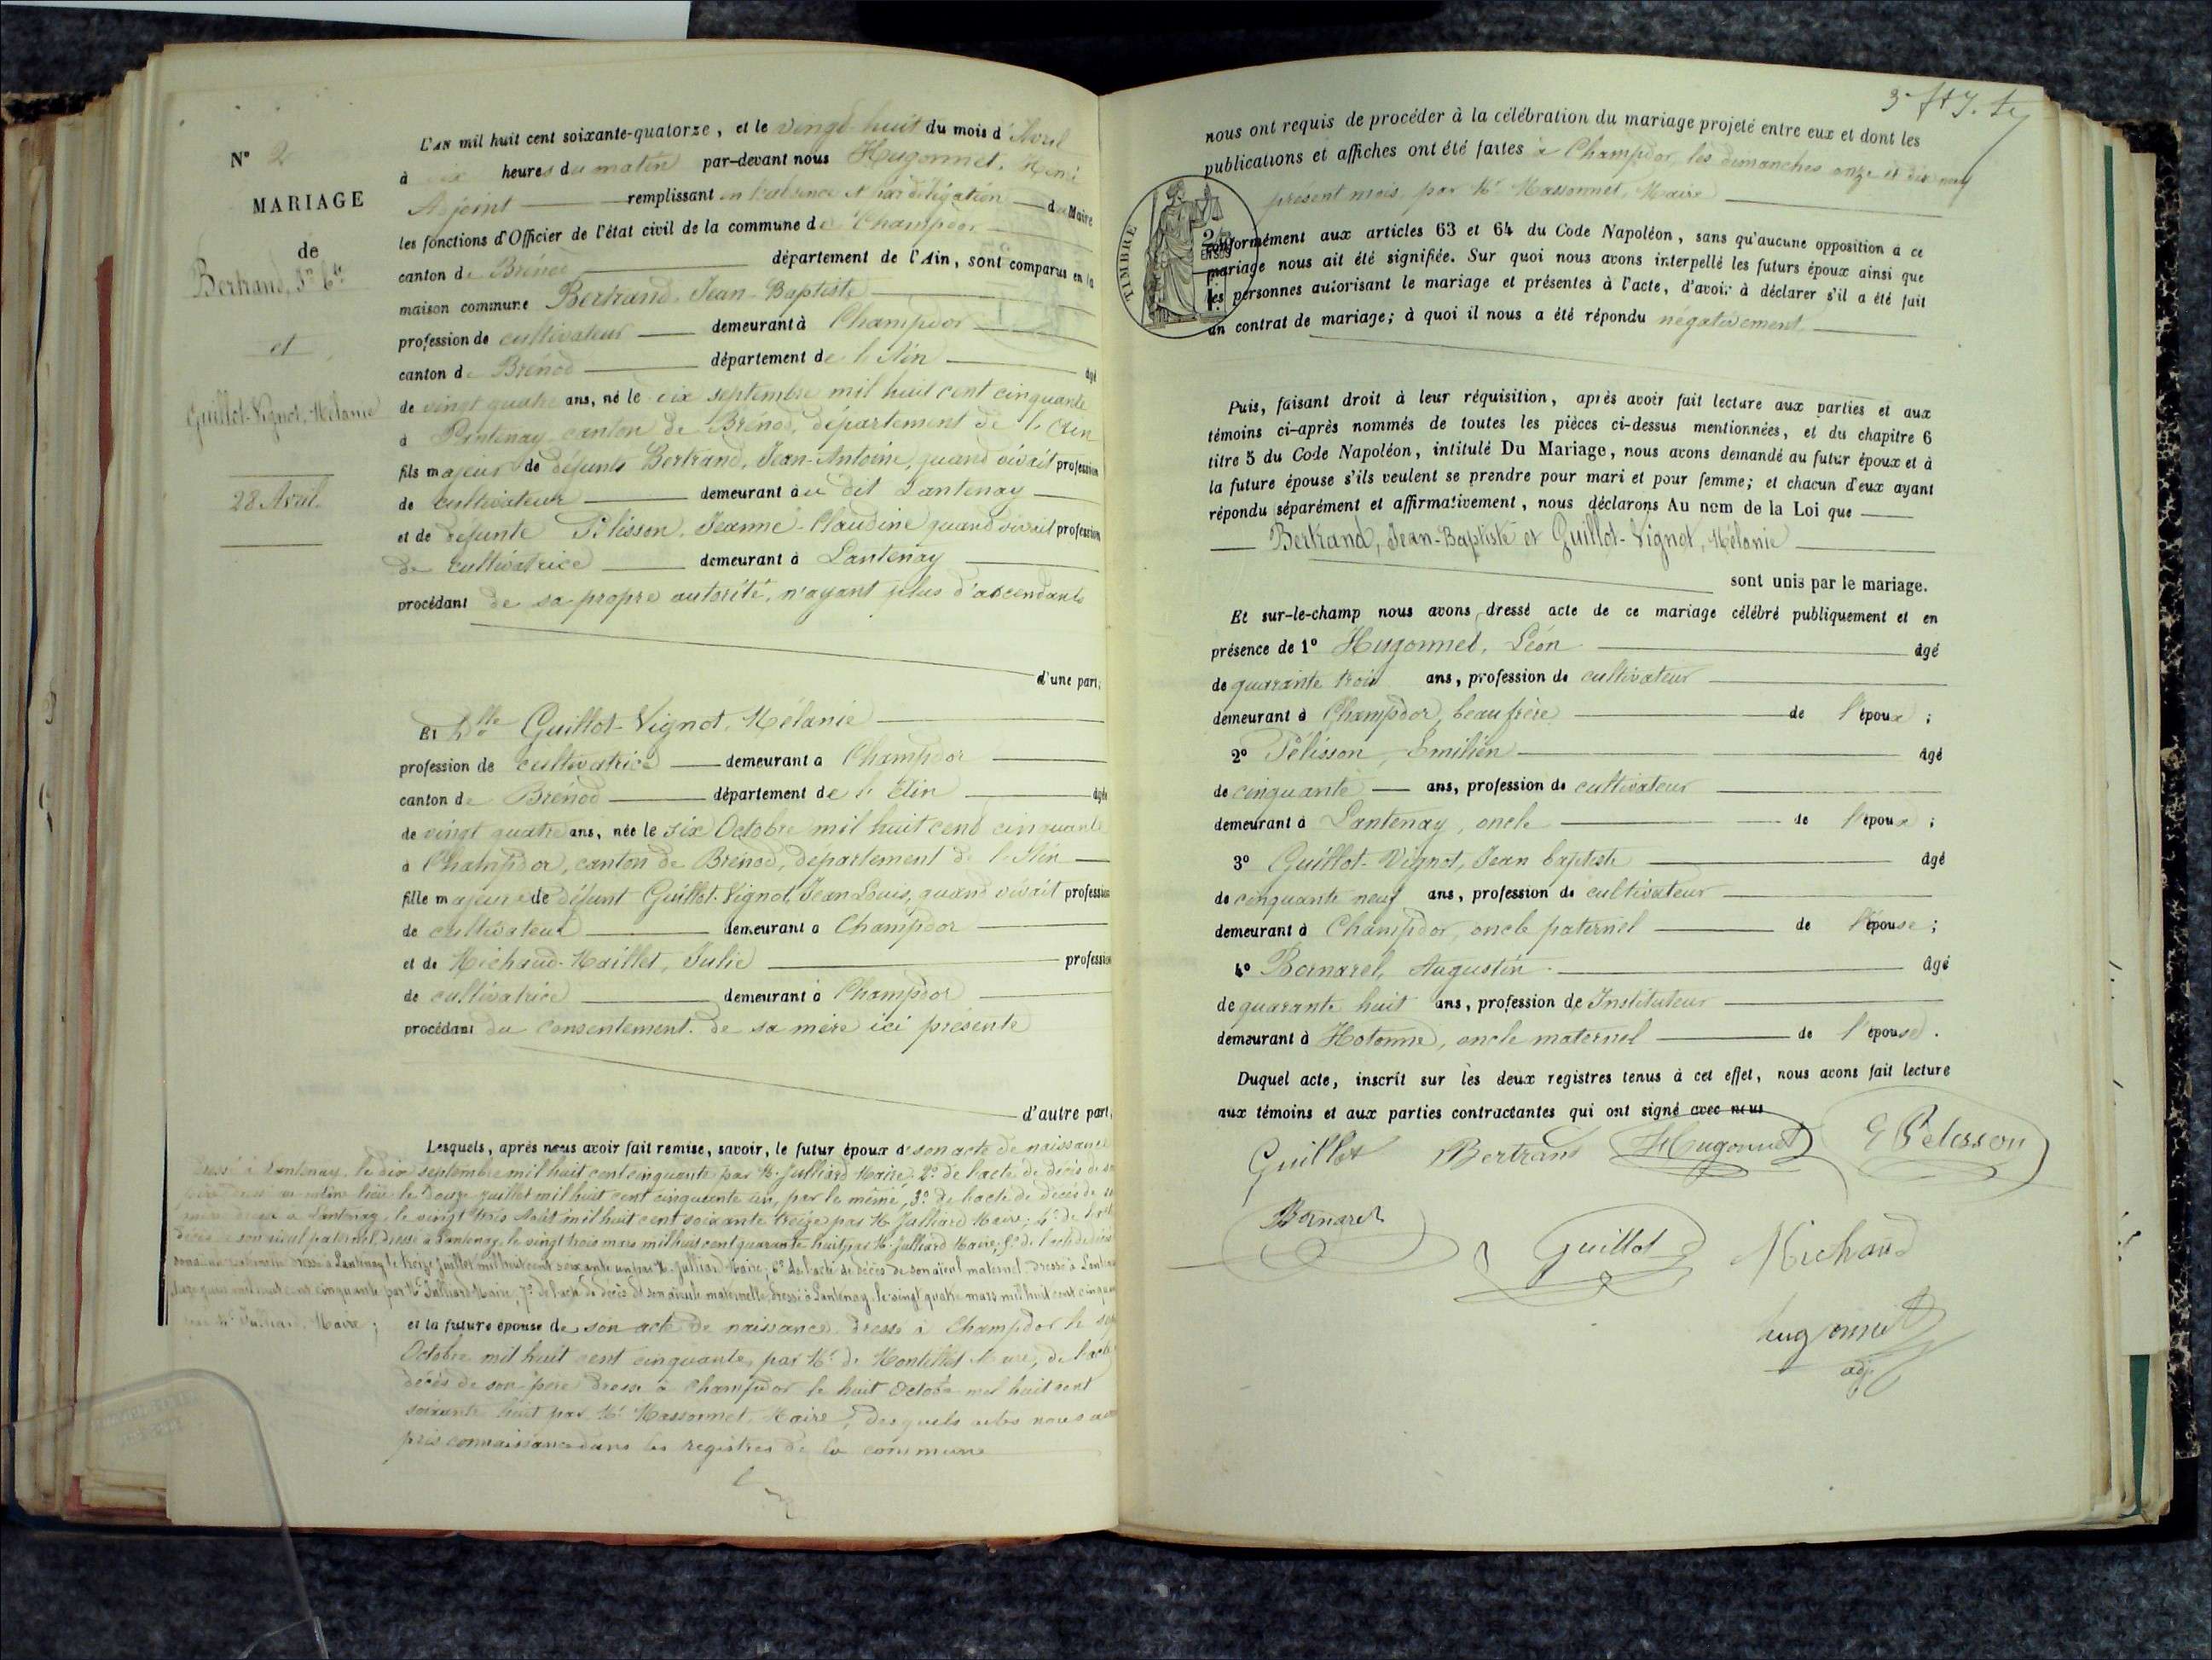 N° 2
MARIAGE
de
Bertrand, Jn Bte
et
Guillot-Vignot, Mélanie
28 Avril.
L'AN mil huit cent soixante-quatorze, et le vingt huit du mois d'Avril
à dix heures du matin par-devant nous Hugonnet, René
Adjoint remplissant en l'absence et par délégation du Maire
les fonctions d'Officier de l'état civil de la commune de Champdor
canton de Brénod département de l'Ain, sont comparus en la
maison commune Bertrand, Jean-Baptiste
profession de cultivateur demeurant à Champdor
canton de Brénod département de l'Ain âgé
de vingt quatre ans, né le dix septembre mil huit cent cinquante
à Lantenay canton de Brénod, département de l'Ain
fils majeur de défunts Bertrand, Jean-Antoine, quand vivait profession
de cultivateur demeurant au dit Lantenay
et de défunte Pélisson, Jeanne-Claudine quand vivait profession
de cultivatrice demeurant à Lantenay
procédant de sa propre autorité, n'ayant plus d'ascendants
d'une part;
Et Dlle Guillot-Vignot, Mélanie
profession de cultivatrice demeurant à Champdor
canton de Brénod département de l'Ain âgée
de vingt quatre ans, née le six Octobre mil huit cent cinquante
à Champdor, canton de Brénod, département de l'Ain
fille majeure de défunt Guillot-Vignot, Jean Louis, quand vivait profession
de cultivateur demeurant à Champdor
et de Michaud-Maillet, Julie profession
de cultivatrice demeurant à Champdor
procédant du consentement de sa mère ici présente
d'autre part,
Lesquels, après nous avoir fait remise, savoir, le futur époux de son acte de naissance
dressé à Lantenay, le dix septembre mil huit cent cinquante par Mr Julliard Maire; 2° de l'acte de décès de
père dressé au même lieu le douze juillet mil huit cent cinquante un, par le même, 3° de l'acte de décès de
mère dressé à Lantenay, le vingt trois Août mil huit cent soixante treize par Mr Julliard Maire; 4° de
décès de son aïeul paternel dressé à Lantenay, le vingt trois mars mil huit cent quarante huit par Mr Julliard Maire; 5° de l'acte de décès
dressé à Lantenay le treize Juillet mil huit cent soixante un par Mr Julliard Maire; 6° de l'acte de décès de son aïeul maternel dressé à
mil huit cent cinquante par Mr Julliard Maire, 7° de l'acte de décès de son aïeule maternelle dressé à Lantenay le vingt quatre mars mil huit cent
par Mr Julliard, Maire; et la future épouse de son acte de naissance dressé à Champdor le
Octobre mil huit cent cinquante, par Mr de Montillet Maire, de l'acte
décès de son père dressé à Champdor le huit Octobre mil huit cent
soixante huit par Mr Massonnet, Maire, desquels actes nous
pris connaissance dans les registres de la commune
nous ont requis de procéder à la célébration du mariage projeté entre eux et dont les
publications et affiches ont été faites à Champdor, les dimanches onze et dix neuf
présent mois, par Mr Massonnet, Maire
TIMBRE
conformément aux articles 63 et 64 du Code Napoléon, sans qu'aucune opposition à ce
mariage nous ait été signifiée. Sur quoi nous avons interpellé les futurs époux ainsi que
les personnes autorisant le mariage et présentes à l'acte, d'avoir à déclarer s'il a été fait
un contrat de mariage; à quoi il nous a été répondu négativement
Puis, faisant droit à leur réquisition, après avoir fait lecture aux parties et aux
témoins ci-après nommés de toutes les pièces ci-dessus mentionnées, et du chapitre 6
titre 5 du Code Napoléon, intitulé Du Mariage, nous avons demandé au futur époux et à
la future épouse s'ils veulent se prendre pour mari et pour femme; et chacun d'eux ayant
répondu séparément et affirmativement, nous déclarons Au nom de la Loi que
Bertrand, Jean-Baptiste et Guillot-Vignot, Mélanie
sont unis par le mariage.
Et sur-le-champ nous avons dressé acte de ce mariage célébré publiquement et en
présence de 1° Hugonnet, Léon âgé
de quarante trois ans, profession de cultivateur
demeurant à Champdor, beau frère de l'époux;
2° Pélisson, Emilien âgé
de cinquante ans, profession de cultivateur
demeurant à Lantenay, oncle de l'époux;
3° Guillot-Vignot, Jean baptiste âgé
de cinquante neuf ans, profession de cultivateur
demeurant à Champdor, oncle paternel de l'épouse;
4° Bornarel, Augustin âgé
de quarante huit ans, profession de Instituteur
demeurant à Hotonne, oncle maternel de l'épouse.
Duquel acte, inscrit sur les deux registres tenus à cet effet, nous avons fait lecture
aux témoins et aux parties contractantes qui ont signé avec nous
Guillot Bertrand Hugonnet E Pelisson
Bornarel Guillot Michaud
hugonnet
adj